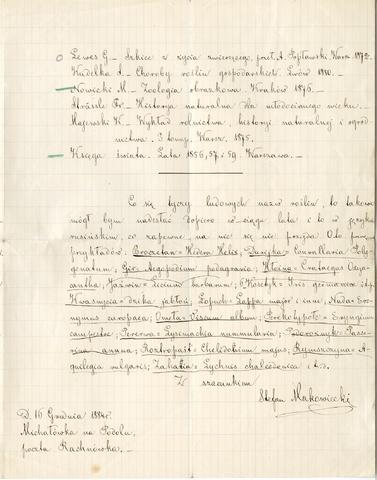 Lewes G – Szkice z życia zwierzęcego, przet. A. Popławski. Warsz. 1872.
Kudelka S. – Choroby roślin gospodarskich. Lwów 1880.
Nowicki M – Zoologia obrazkowa. Kraków 1876.
Strässle Fr. – Historya naturalna dla młodocianego wieku.
Majewski W – Wykład rolnictwa, historyi naturalnej i ogrod-
nictwa. 2 tomy. Warsz. 1875.
Księga świata. Lata 1856, 57 i 59. Warszawa.
Co się tyczy ludowych nazw roślin, to takowe
mógłbym nadesłać dopiero w ciągu lata i to w języku
rusińskim, co zapewne na nic się nie przyda. Oto parę
przykładów: Broczetan = Hedera Helix, Convallaria Poly-
gonatum; Gir = Aegopodium podagraria; Crataegus Oxya-
cantha; Jaźwin = Sicium barbarum; Kosetyk = Iris germanica i t.p.
Kwasnycia = dzika jabłoń; Łopuch = Lappa major i inne; Evo-
nymus europaea; Omeła = Viscum album; Perekotypołe = Eryngium
campestre; Lysimachia nummularia; Podorożnyk =
annua; Roztropast = Chelidonium majus; A-
quilegia vulgaris; Lychnis chalcedonica i t.d.
Z
szacunkiem
Stefan Makowiecki
D. 16 Grudnia 1884 r.
Michałówka na Podolu,
poczta Rachnówka.